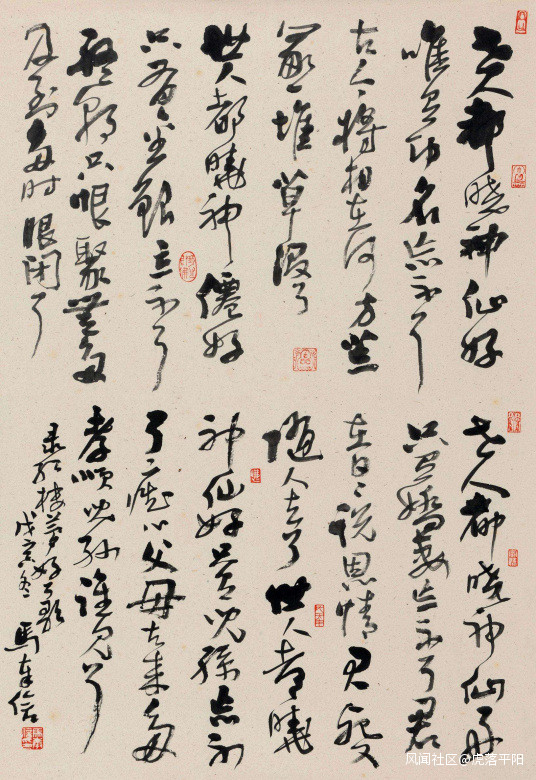 世人都晓神仙好
唯有功名忘不了
古今将相在何方荒
冢一堆草没了
世人都曉神僊好
只有金銀忘不了
終朝只恨聚無多
及到多时眼闭了
世人都晓神仙好
只有嬌妻忘不了君
在日日说恩情君死又
随人去了世人都曉
神仙好只有児孫忘不
了痴心父母古来多
孝顺児孙谁见了
录红楼梦好了歌
戊寅冬 馬
风闻社区@虎落平阳